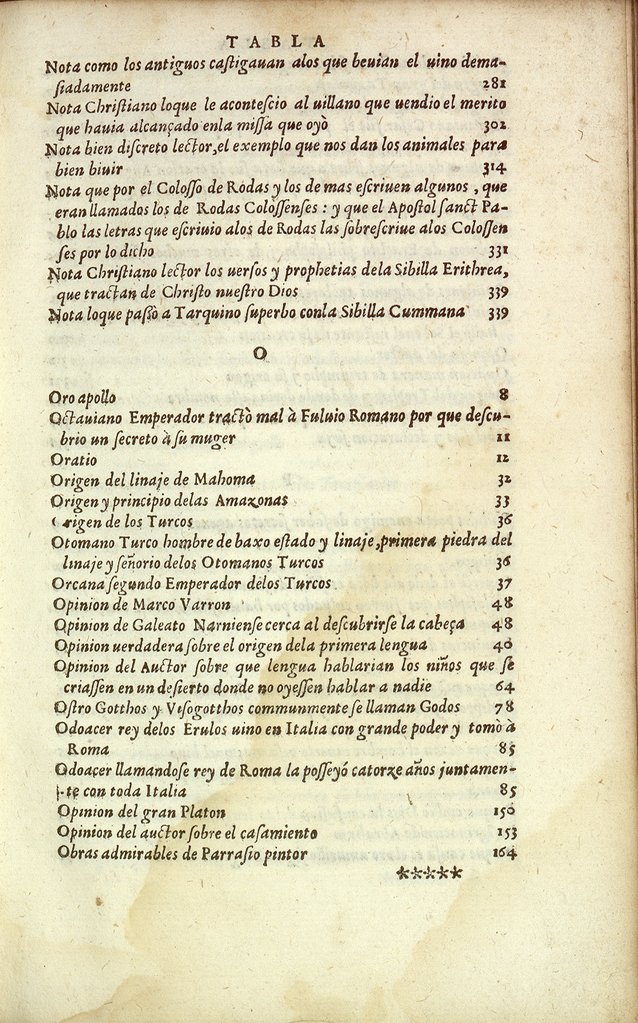 TABLA
Nota como los antiguos caſtigauan alos que beuian el uino dema-
ſiadamente 281
Nota Chriſtiano loque le aconteſcio al uillano que uendio el merito
que hauia alcançado enla miſſa que oyò 302
Nota bien diſcreto lector,el exemplo que nos dan los animales para
bien biuir 314
Nota que por el Coloſſo de Rodas y los de mas eſcriuen algunos , que
eran llamados los de Rodas Coloſſenſes : y que el Apoſtol ſanct Pa-
blo las letras que eſcriuio alos de Rodas las ſobreſcriue alos Coloſſen
ſes por lo dicho 331
Nota Chriſtiano lector los uerſos y prophetias dela Sibilla Erithrea,
que tractan de Chriſto nueſtro Dios 339
Nota loque paſſò a Tarquino ſuperbo conla Sibilla Cummana 339
O
Oro apollo 8
Octauiano Emperador tractò mal à Fuluio Romano por que deſcu-
brio un ſecreto à ſu muger 11
Oratio 12
Origen del linaje de Mahoma 32
Origen y principio delas Amazonas 33
Origen de los Turcos 36
Otomano Turco hombre de baxo eſtado y linaje,primera piedra del
linaje y ſeñorio delos Otomanos Turcos 36
Orcana ſegundo Emperador delos Turcos 37
Opinion de Marco Varron 48
Opinion de Galeato Narnienſe cerca al deſcubrirſe la cabeça 48
Opinion uerdadera ſobre el origen dela primera lengua 40
Opinion del Auctor ſobre que lengua hablarian los niños que ſe
criaſſen en un deſierto donde no oyeſſen hablar a nadie 64
Oſtro Gotthos y Viſogotthos communmente ſe llaman Godos 78
Odoacer rey delos Erulos uino en Italia con grande poder y tomò à
Roma 85
Odoacer llamandoſe rey de Roma la poſſeyó catorze años juntamen-
te con toda Italia 85
Opinion del gran Platon 150
Opinion del auctor ſobre el caſamiento 153
Obras admirables de Parraſio pintor 164
*****